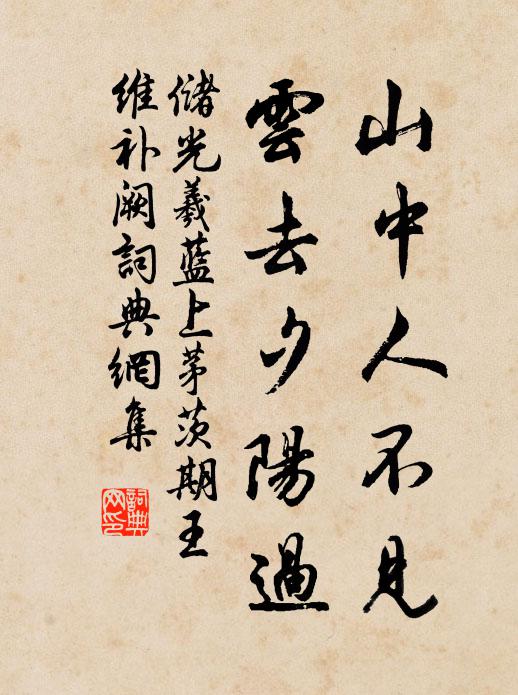 山中人不見
雲去夕陽過
儲光羲藍上茅茨期王
維补阙詞典網集
詞典
网印